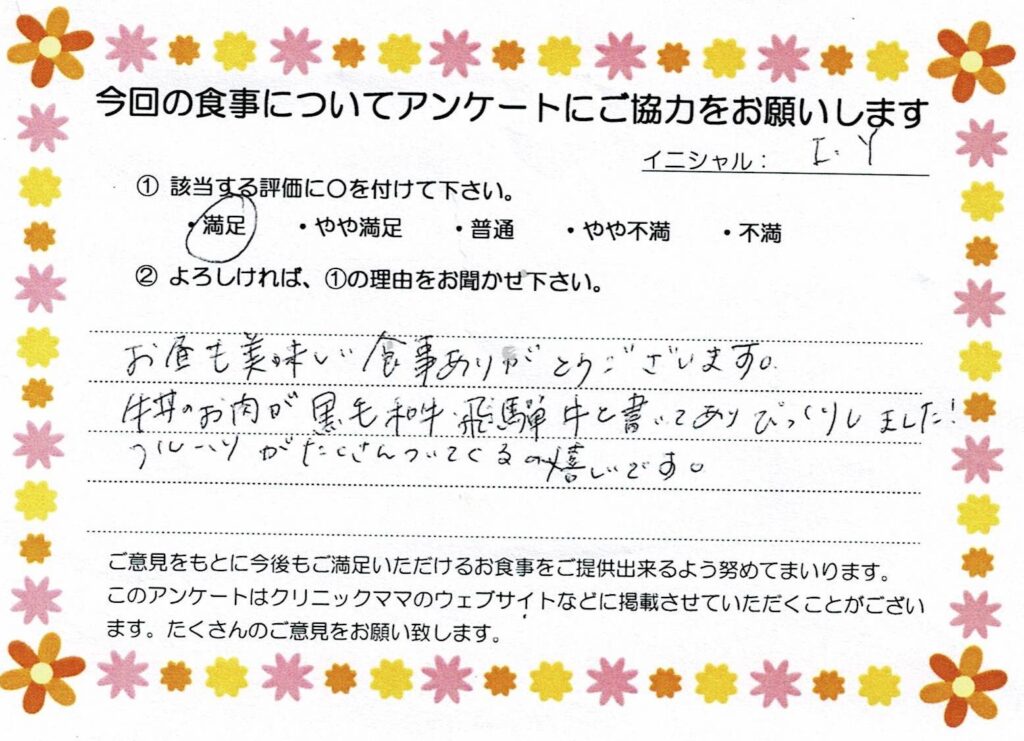 今回の食事についてアンケートにご協力をお願いします
イニシャル： I.Y
① 該当する評価に○を付けて下さい。
・満足 ・やや満足 ・普通 ・やや不満 ・不満
② よろしければ、①の理由をお聞かせ下さい。
お昼も美味しい食事ありがとうございます。
牛丼のお肉が黒毛和牛飛騨牛と書いてありびっくりしました!
フルーツがたくさんついてくるの嬉しいです。
ご意見をもとに今後もご満足いただけるお食事をご提供出来るよう努めてまいります。
このアンケートはクリニックママのウェブサイトなどに掲載させていただくことがござい
ます。たくさんのご意見をお願い致します。